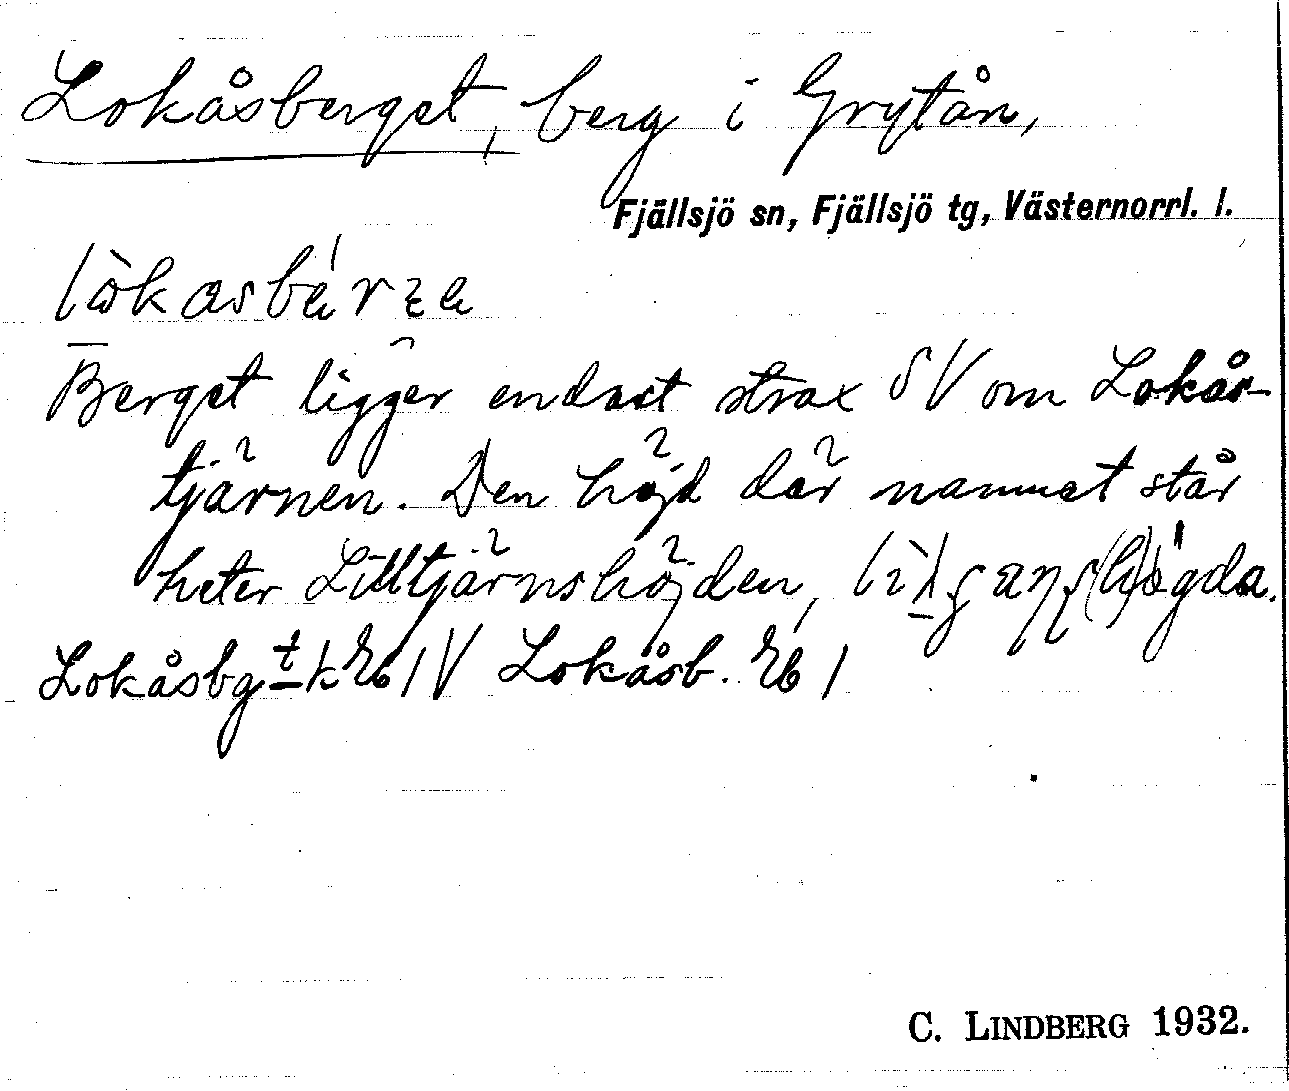 Lokåsberget, berg i Grytån,
Fjällsjö sn, Fjällsjö tg, Västernorrl. l.
Berget ligger endast strax SV om Lokås-
tjärnen. Den höjd där namnet står
heter Lilltjärnshöjden,
Lokåsbg Lokåsb.
C. LINDBERG 1932.